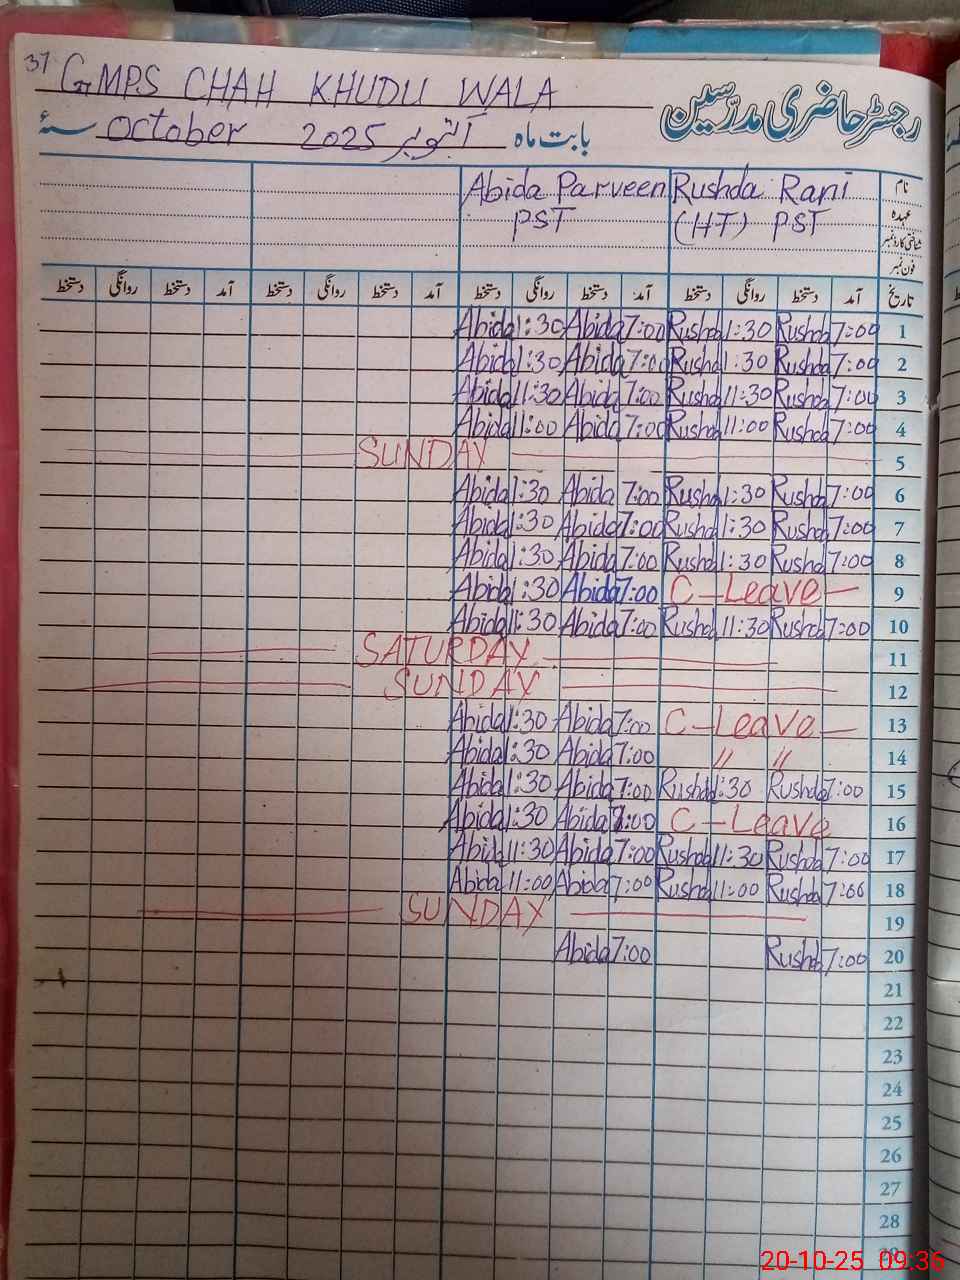 37 GMPS CHAH KHUDU WALA
رجسٹر حاضری مدرسین
بابت ماہ اکتوبر 2025 October سنۂ
نام Rushda Rani Abida Parveen
عہدہ (HT) PST PST
شناختی کارڈ نمبر
فون نمبر
تاریخ آمد دستخط روانگی دستخط آمد دستخط روانگی دستخط آمد دستخط روانگی دستخط آمد دستخط روانگی دستخط
Abida 1:30 Abida 7:00 Rushda 1:30 Rushda 7:00 1
Abida 1:30 Abida 7:00 Rushda 1:30 Rushda 7:00 2
Abida 11:30 Abida 7:00 Rushda 11:30 Rushda 7:00 3
Abida 11:00 Abida 7:00 Rushda 11:00 Rushda 7:00 4
SUNDAY 5
Abida 1:30 Abida 7:00 Rushda 1:30 Rushda 7:00 6
Abida 1:30 Abida 7:00 Rushda 1:30 Rushda 7:00 7
Abida 1:30 Abida 7:00 Rushda 1:30 Rushda 7:00 8
Abida 1:30 Abida 7:00 C-Leave 9
Abida 11:30 Abida 7:00 Rushda 11:30 Rushda 7:00 10
SATURDAY 11
SUNDAY 12
Abida 1:30 Abida 7:00 C-Leave 13
Abida 1:30 Abida 7:00 〃 〃 14
Abida 1:30 Abida 7:00 Rushda 1:30 Rushda 7:00 15
Abida 1:30 Abida 7:00 C-Leave 16
Abida 11:30 Abida 7:00 Rushda 11:30 Rushda 7:00 17
Abida 11:00 Abida 7:00 Rushda 11:00 Rushda 7:00 18
SUNDAY 19
Abida 7:00 Rushda 7:00 20
21
22
23
24
25
26
27
28
29
20-10-25 09:36